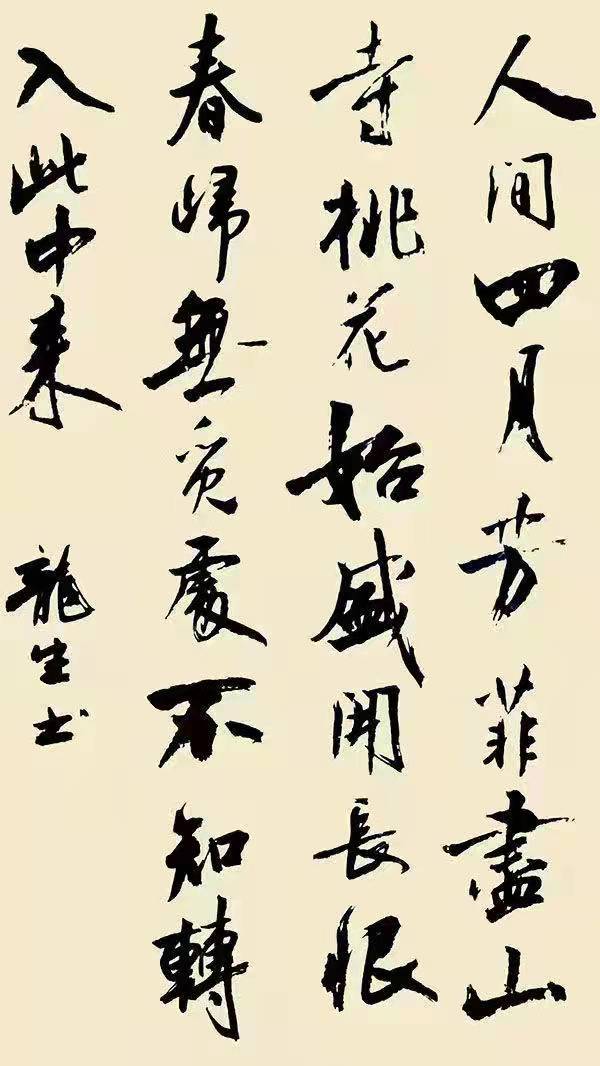 人间四月芳菲盡山
寺桃花始盛開長恨
春歸無覓處不知轉
入此中来
龍生书